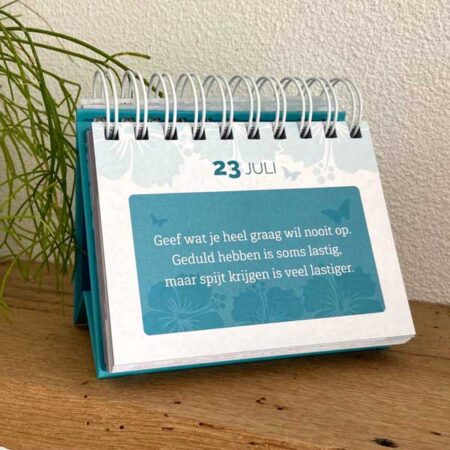 23 JULI
Geef wat je heel graag wil nooit op.
Geduld hebben is soms lastig,
maar spijt krijgen is veel lastiger.